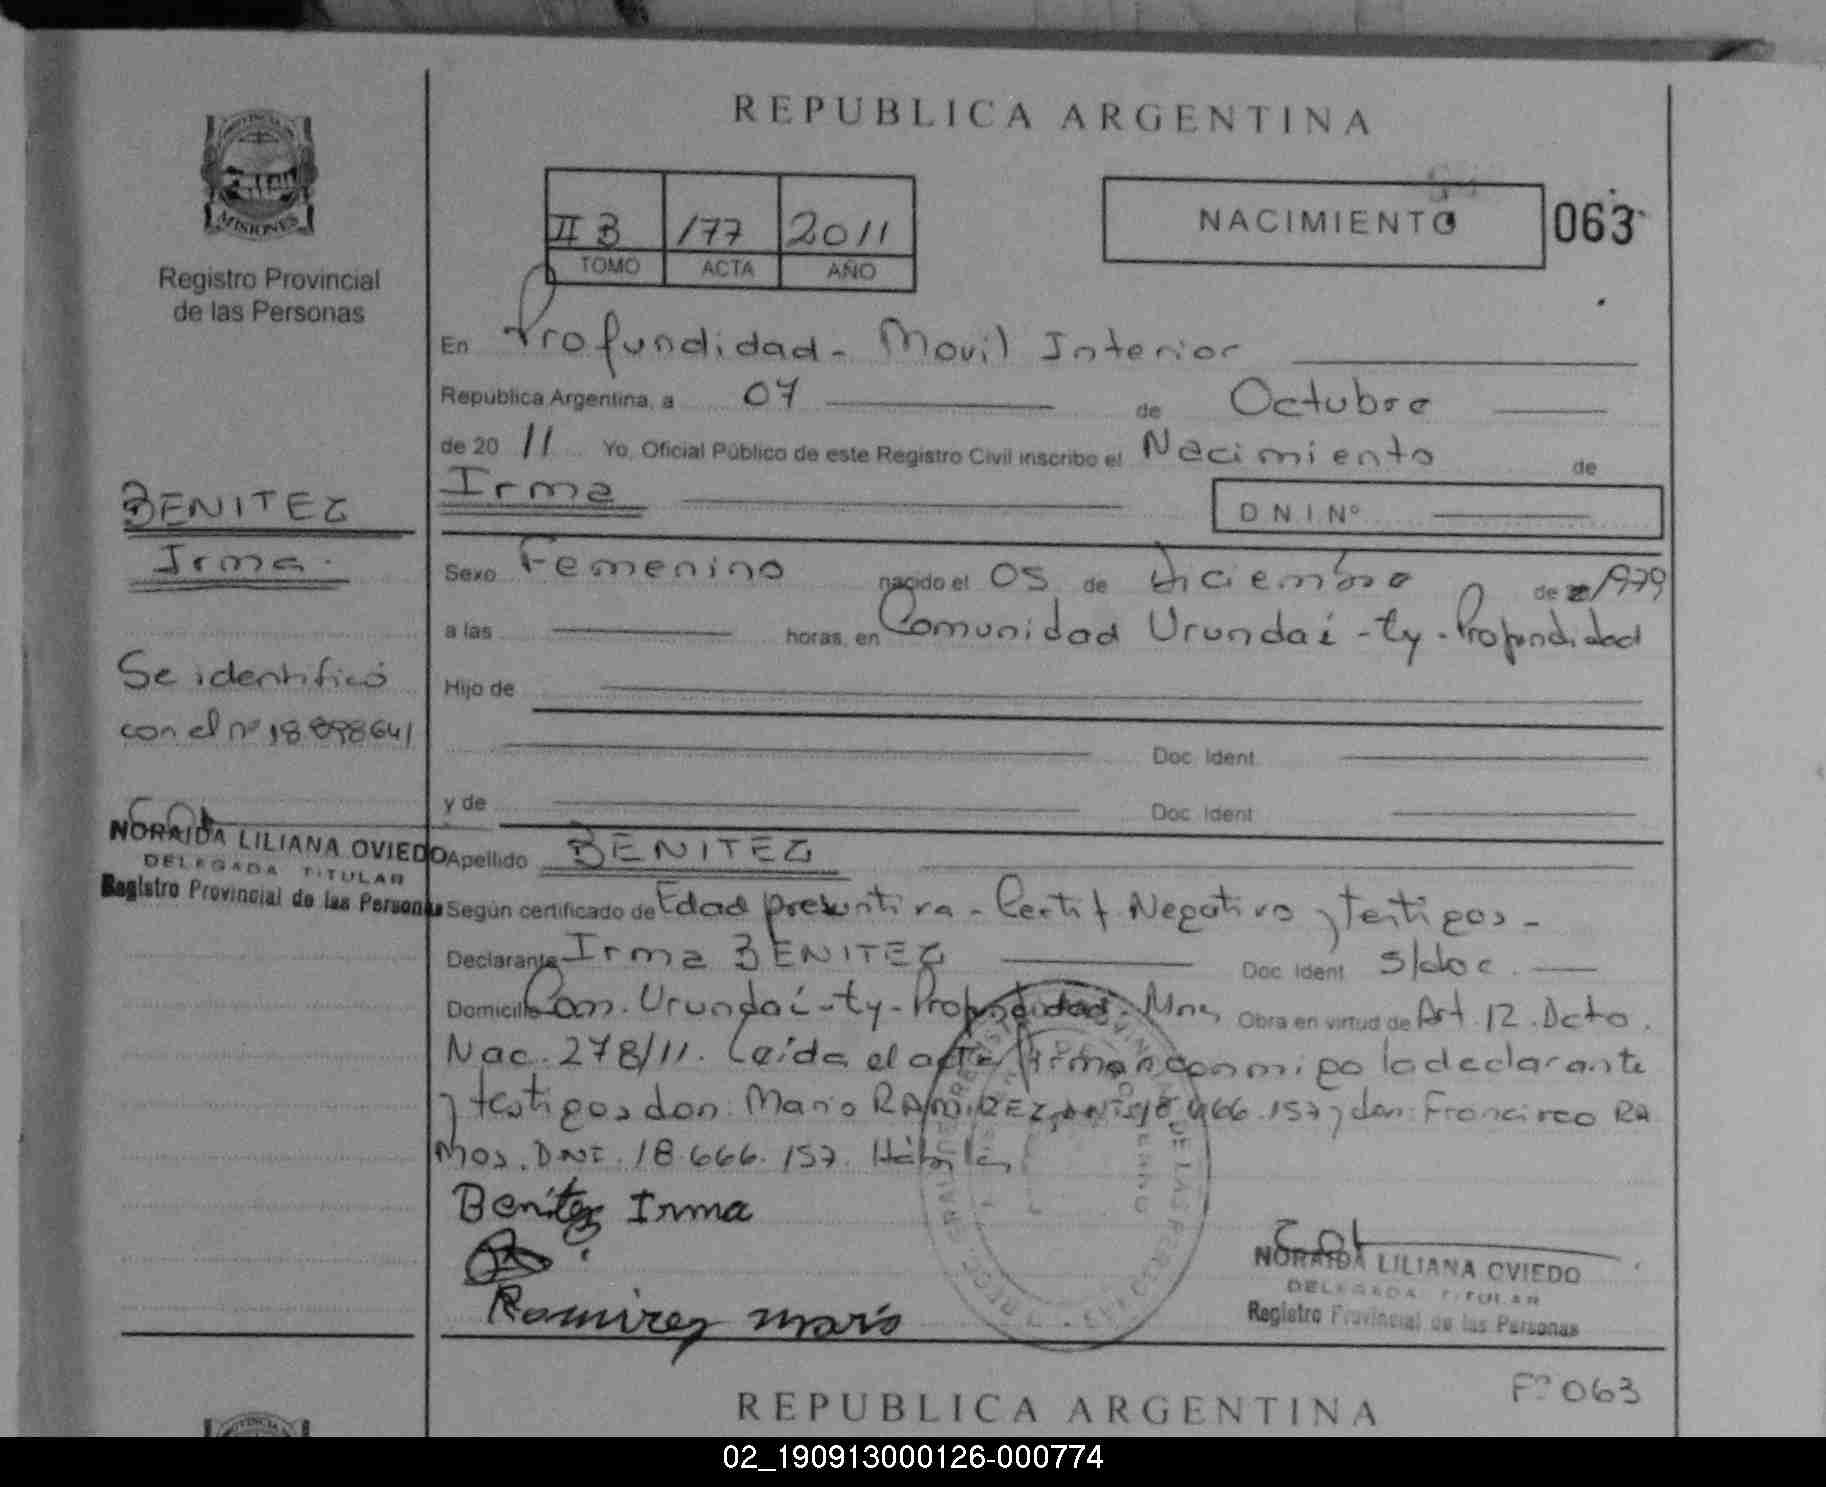 REPUBLICA ARGENTINA
PROVINCIA DE
MISIONES
Registro Provincial
de las Personas
II B 177 2011
TOMO ACTA AÑO
NACIMIENTO
063
En Profundidad - Movil Interior
Republica Argentina, a 07 de Octubre
de 20 11 Yo, Oficial Público de este Registro Civil inscribo el Nacimiento de
Irma
D N I Nº
BENITEZ
Irma.
Sexo Femenino nacido el 05 de diciembre de 1979
a las horas, en Comunidad Urundaí-ty-Profundidad
Se identificó
con el nº 18.898641
Hijo de
Doc. Ident.
y de Doc. Ident.
NORAIDA LILIANA OVIEDO
DELEGADA TITULAR
Registro Provincial de las Personas
Apellido BENITEZ
Según certificado de Edad presuntiva - Certif. Negativo y testigos -
Declarante Irma BENITEZ Doc. Ident. s/doc.
Domicilio Com. Urundaí-ty-Profundidad. Mnes Obra en virtud de Art. 12. Dcto.
Nac. 278/11. Leída el acta firman conmigo la declarante
y testigos don: Mario RAMIREZ, DNI: 18.466.157 y don: Francisco RA
MOS. DNI. 18.666.157. Hábiles
Benítez Irma
Ramirez Mario
NORAIDA LILIANA OVIEDO
DELEGADA TITULAR
Registro Provincial de las Personas
Fº 063
REPUBLICA ARGENTINA
02_190913000126-000774